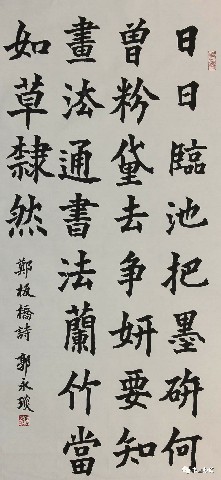 日日臨池把墨研何
曾粉黛去争妍要知
畫法通書法蘭竹當
如草隸然
鄭板橋詩 郭永